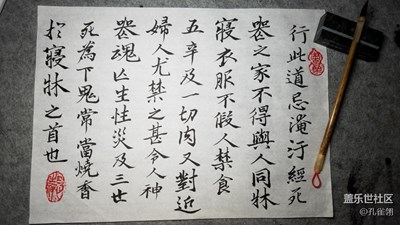 行此道忌淹汙經死
喪之家不得與人同牀
寢衣服不假人禁食
五辛及一切肉又對近
婦人尤禁之甚令人神
喪魂亡生性災及三世
死為下鬼常當燒香
於寢牀之首也
盖乐世社区
@孔雀翎